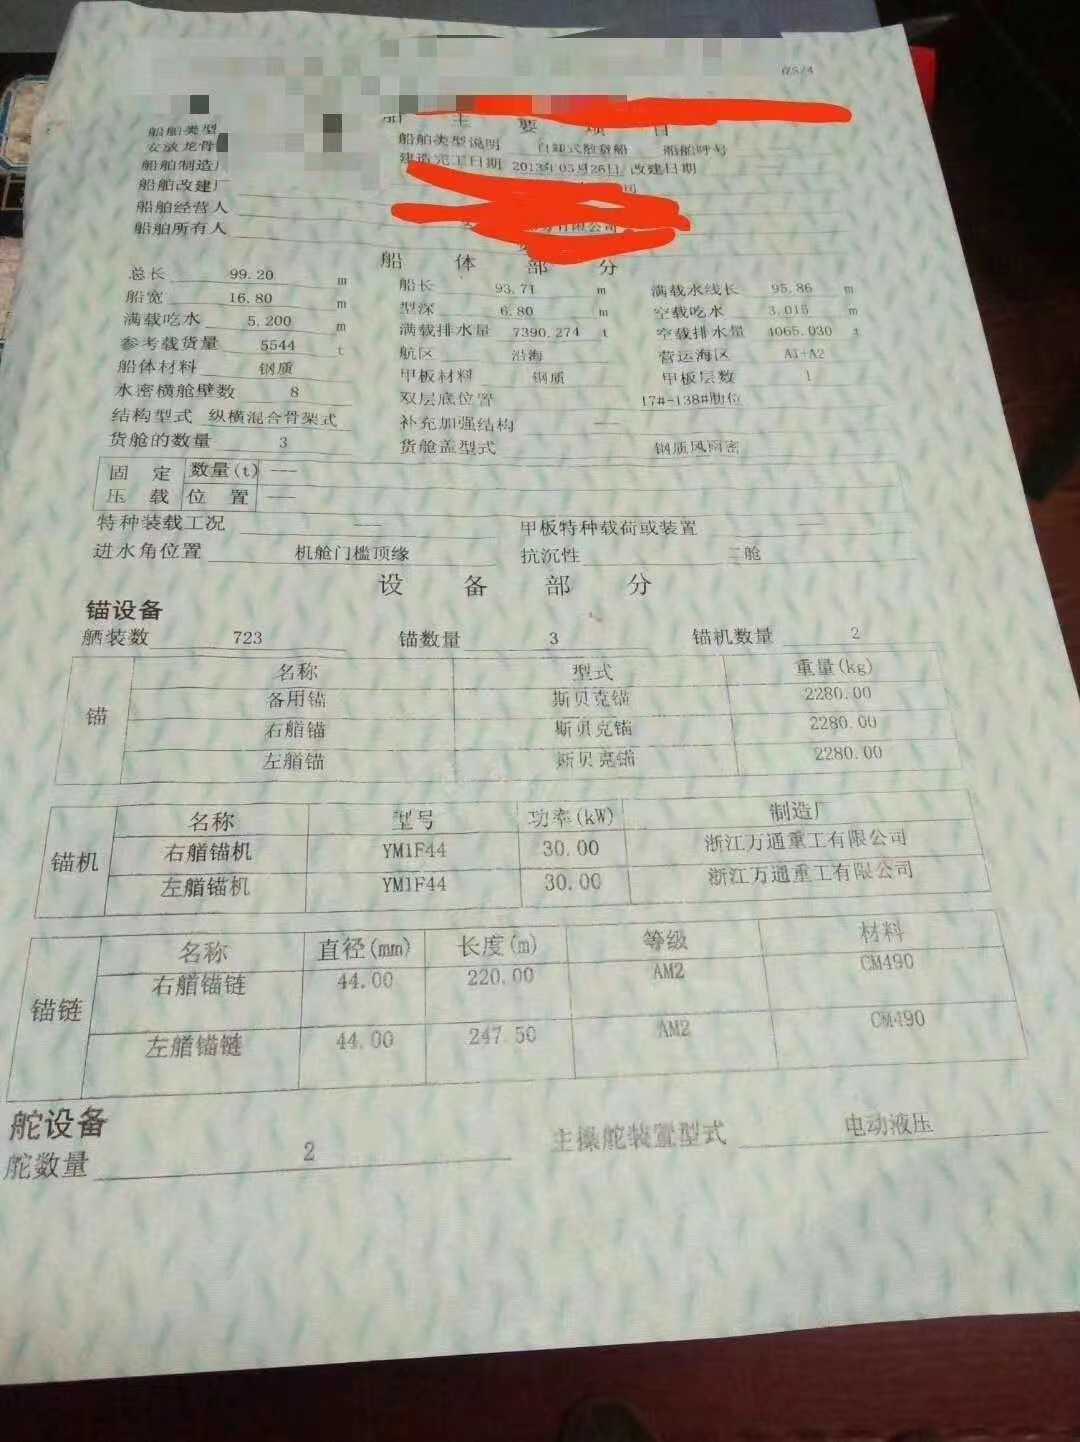 船 主 要 项 目
船舶类型 船舶类型说明 自卸式散货船 船舶呼号
安放龙骨 建造完工日期 2013年05月26日 改建日期
船舶制造厂
船舶改建厂 公司
船舶经营人
船舶所有人 有限公司
船 体 部 分
总长 99.20 m 船长 93.71 m 满载水线长 95.86 m
船宽 16.80 m 型深 6.80 m 空载吃水 3.015 m
满载吃水 5.200 m 满载排水量 7390.274 t 空载排水量 4065.030 t
参考载货量 5544 t 航区 沿海 营运海区 A1+A2
船体材料 钢质 甲板材料 钢质 甲板层数 1
水密横舱壁数 8 双层底位置 17#-138#肋位
结构型式 纵横混合骨架式 补充加强结构 ---
货舱的数量 3 货舱盖型式 钢质风雨密
固 定 数量(t) ---
压 载 位 置 ---
特种装载工况 --- 甲板特种载荷或装置
进水角位置 机舱门槛顶缘 抗沉性 二舱
设 备 部 分
锚设备
舾装数 723 锚数量 3 锚机数量 2
名称 型式 重量(kg)
备用锚 斯贝克锚 2280.00
锚 右艏锚 斯贝克锚 2280.00
左艏锚 斯贝克锚 2280.00
名称 型号 功率(kW) 制造厂
锚机 右艏锚机 YM1F44 30.00 浙江万通重工有限公司
左艏锚机 YM1F44 30.00 浙江万通重工有限公司
名称 直径(mm) 长度(m) 等级 材料
锚链 右艏锚链 44.00 220.00 AM2 CM490
左艏锚链 44.00 247.50 AM2 CM490
舵设备
舵数量 2 主操舵装置型式 电动液压